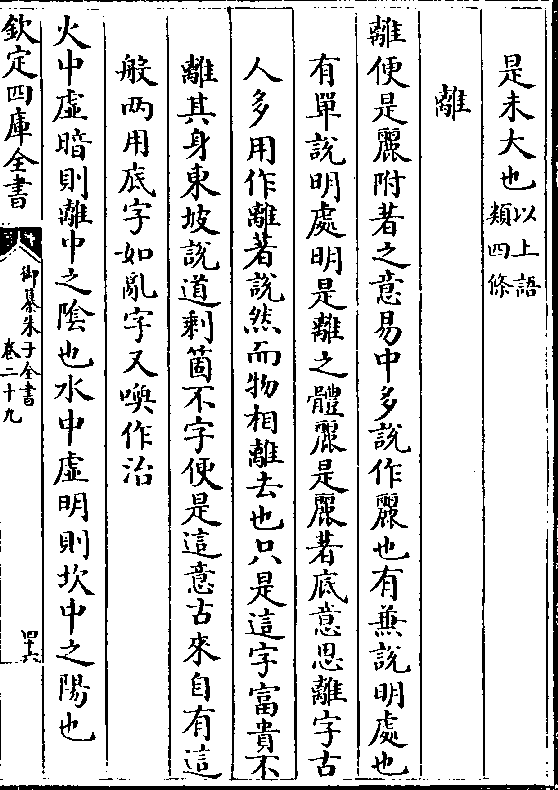 是未大也以上語
類四條
離
離便是麗附著之意易中多說作麗也有兼說明處也
有單說明處明是離之體麗是麗著底意思離字古
人多用作離著說然而物相離去也只是這字富貴不
離其身東坡說道剩箇不字便是這意古來自有這
般兩用底字如亂字又喚作治
火中虛暗則離中之陰也水中虛明則坎中之陽也
欽定四庫全書
御纂朱子全書
卷二十九
四十六